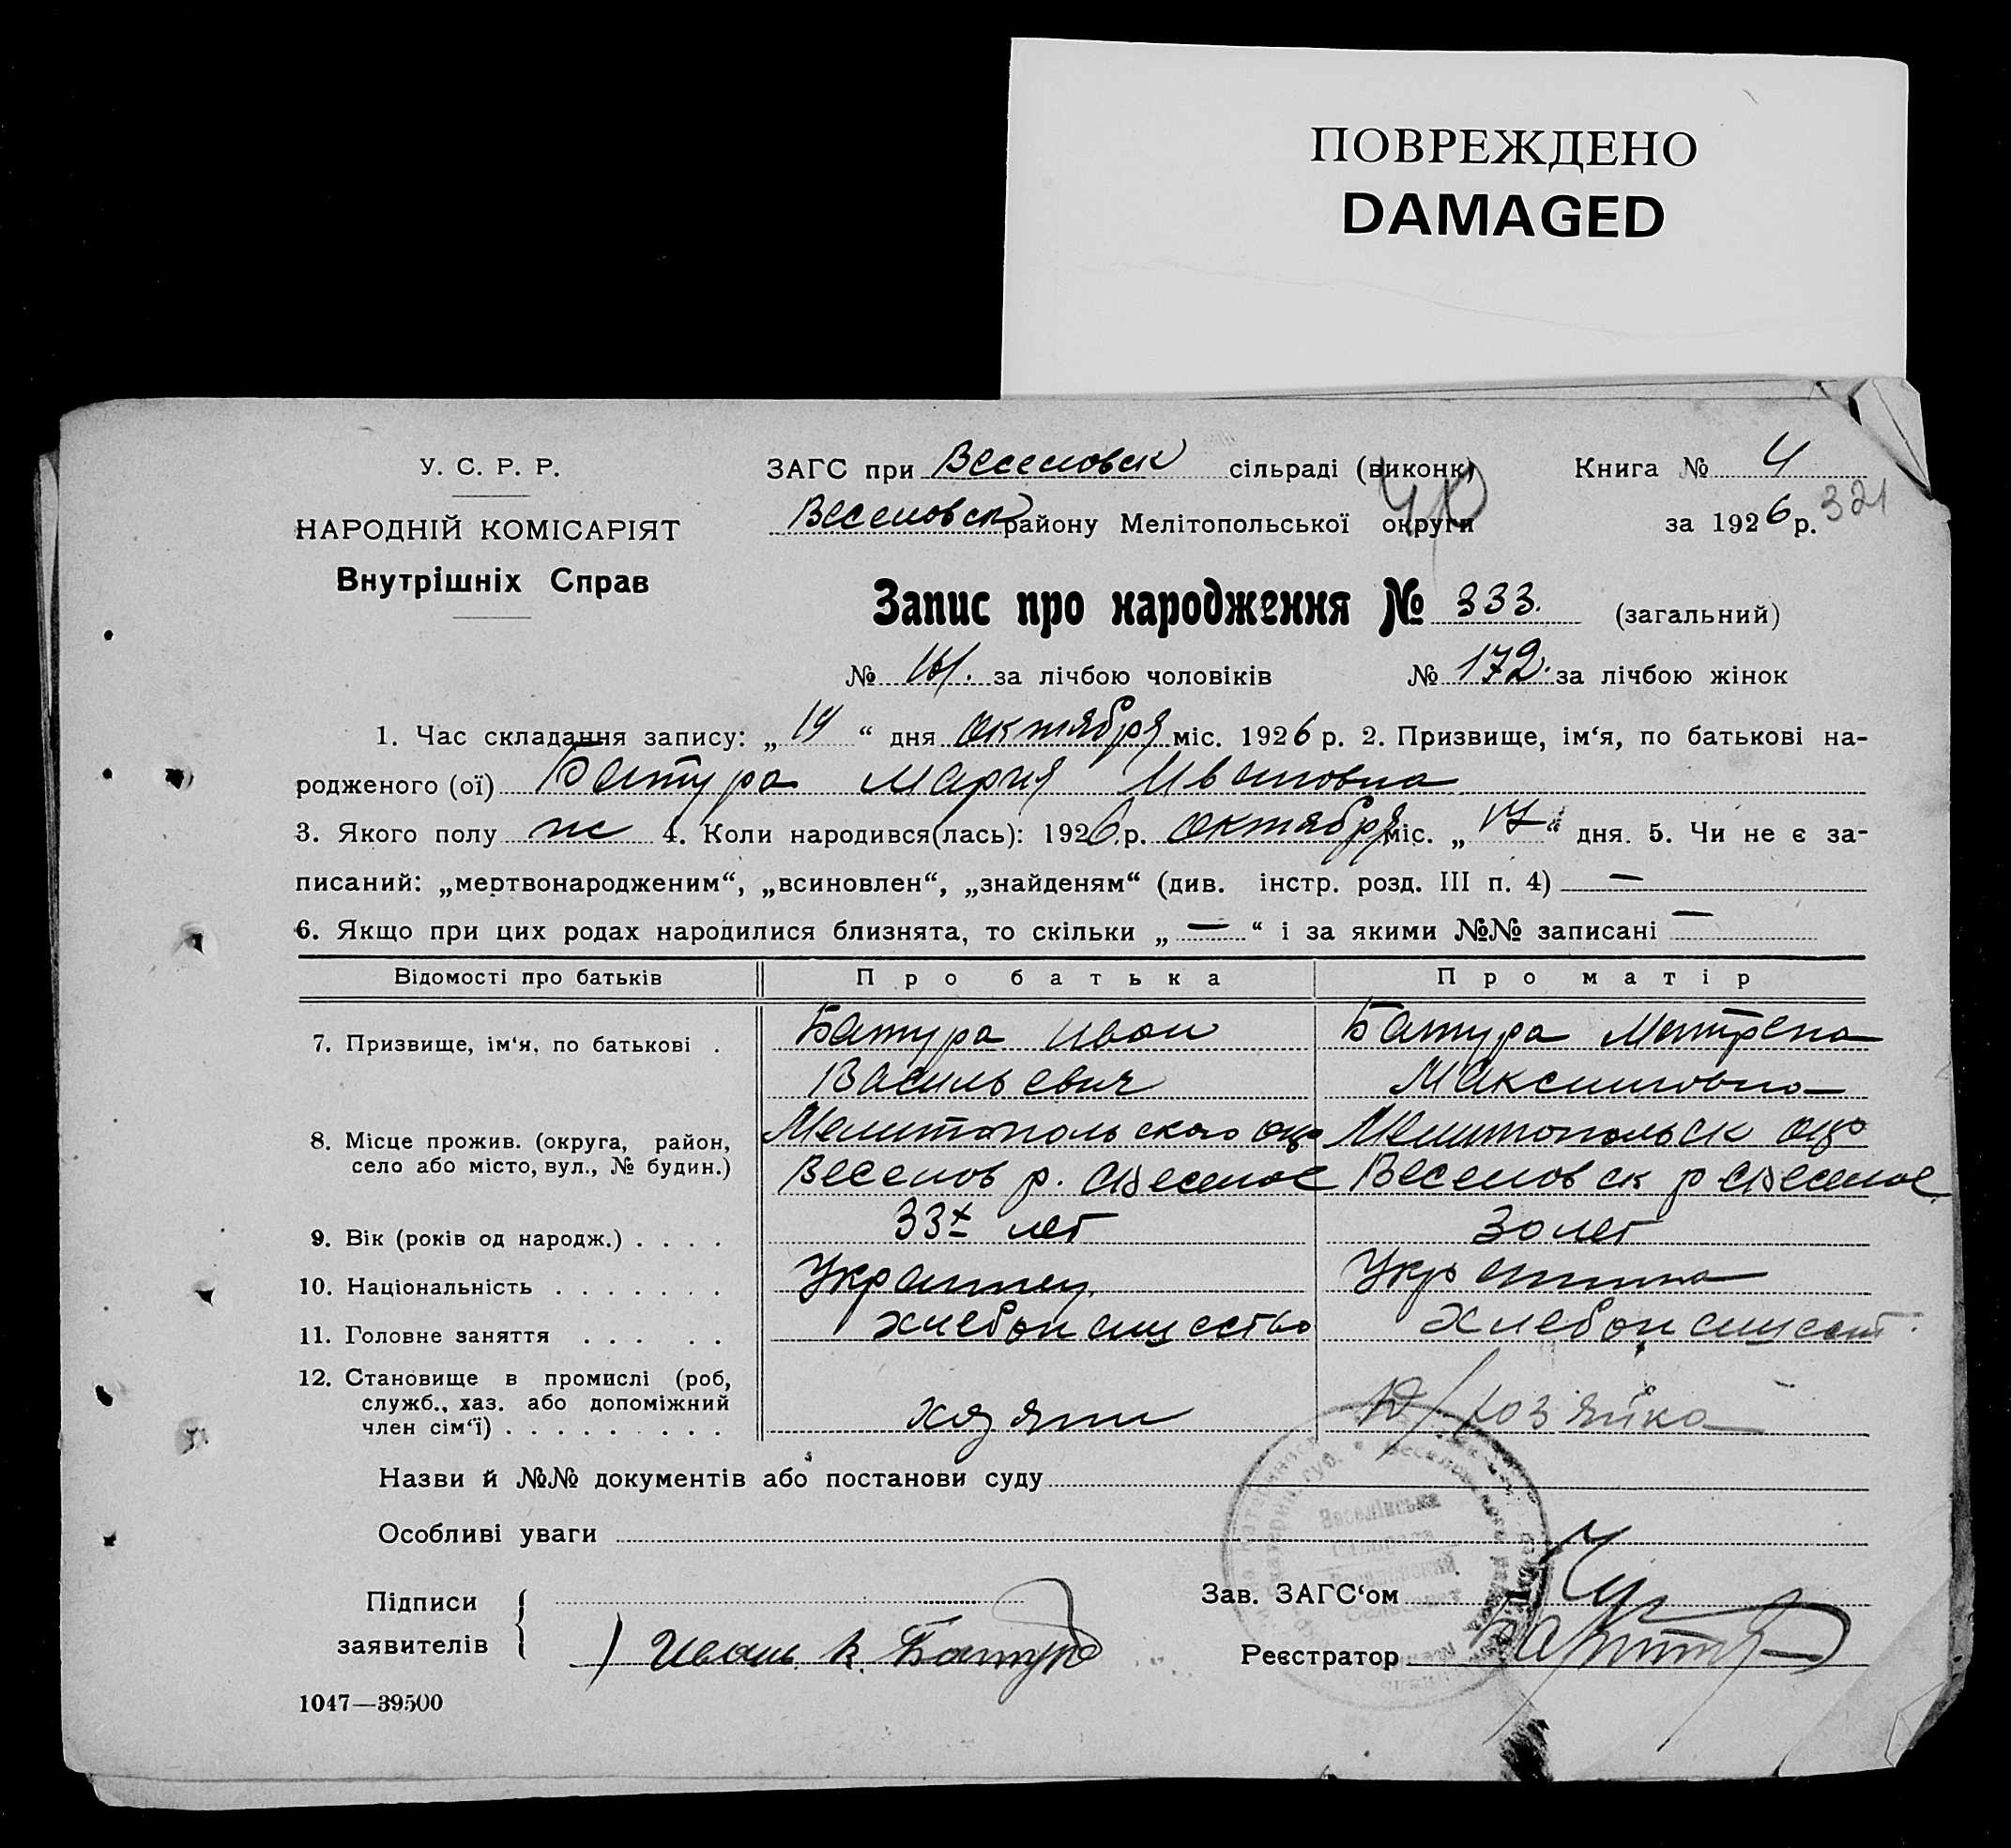 ПОВРЕЖДЕНО
DAMAGED
У. С. Р. Р.
НАРОДНІЙ КОМІСАРІЯТ
Внутрішніх Справ
ЗАГС при Веселовск сільраді (виконк)
Книга № 4
Веселовск району Мелітопольської округи
за 1926 р. 321
Запис про народження № 333. (загальний)
№ 161. за лічбою чоловіків № 172. за лічбою жінок
1. Час складання запису: „19“ дня октября міс. 1926 р. 2. Призвище, ім‘я, по батькові на-
родженого (ої) Батура Мария Ивановна
3. Якого полу жс 4. Коли народився(лась): 1926 р. октября міс. „17“ дня. 5. Чи не є за-
писаний: „мертвонародженим“, „всиновлен“, „знайденям“ (див. інстр. розд. III п. 4) —
6. Якщо при цих родах народилися близнята, то скільки „—“ і за якими №№ записані —
Відомості про батьків Про батька Про матір
7. Призвище, ім‘я, по батькові . Батура Иван Батура Матрена
Васильевич Максимовна
8. Місце прожив. (округа, район, Мелитопольского окр Мелитопольск окр
село або місто, вул., № будин.) Веселов р. с Веселое Веселовск р с Веселое
9. Вік (років од народж.) . . . . 33 лет 30 лет
10. Національність . . . . . . . Украинец Украинка
11. Головне заняття . . . . . хлебопашество Хлебопашест
12. Становище в промислі (роб,
служб., хаз. або допоміжний
член сім‘ї) . . . . . . . . . хозяин Д/хозяйка
Назви й №№ документів або постанови суду
Особливі уваги
Підписи
заявителів
Иван В. Батура
Зав. ЗАГС‘ом
Реєстратор
Веселівська
1047—39500